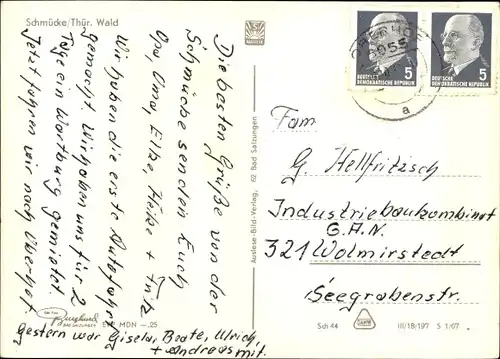 Schmücke/Thür. Wald
Die besten Grüße von der
Schmücke senden Euch
Opa, Oma, Elke Heike + Fritz
Wir haben die erste Autofahrt
gemacht. Wir haben uns für 2
Tage ein Wartburg gemietet.
Jetzt fahren wir nach Oberhof.
Gestern war Gisela, Beate, Ulrich,
+ Andreas mit.
BAD SALZUNGEN
EVP MDN -.25
Auslese-Bild-Verlag, 62 Bad Salzungen
955
a
DEUTSCHE
DEMOKRATISCHE REPUBLIK
5
DEUTSCHE
DEMOKRATISCHE REPUBLIK
5
Fam.
G. Hellfritzsch
Industriebaukombinat
G.A.N.
321 Wolmirstedt
Seegrabenstr.
Sch 44
III/18/197 S 1/67